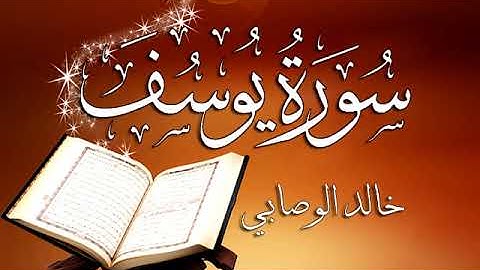 سُورَةُ يُوسُفَ
خالد الوصابي